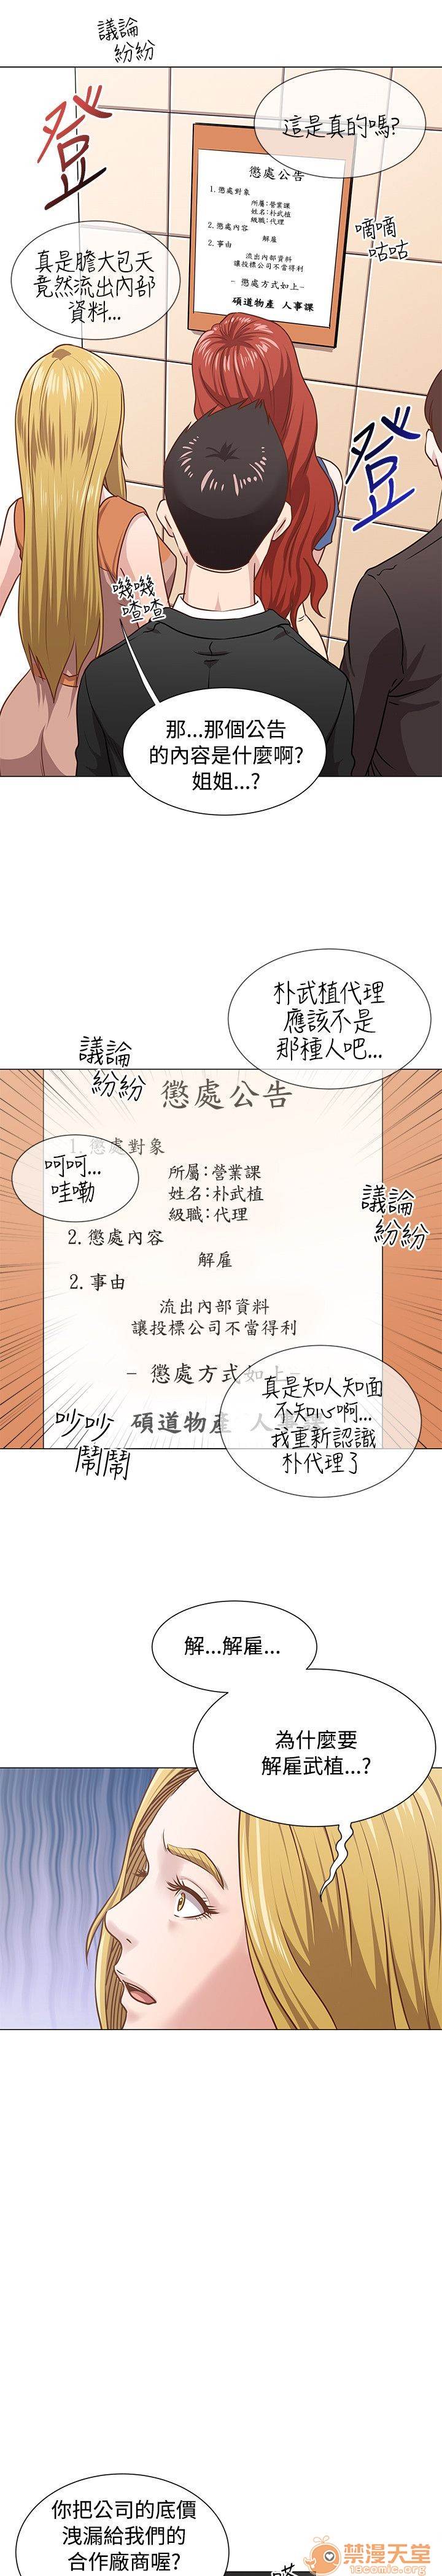 議論
紛紛
登
這是真的嗎?
懲處公告
1.懲處對象
所屬:營業課
姓名:朴武植
級職:代理
2.懲處內容
解雇
2.事由
流出內部資料
讓投標公司不當得利
- 懲處方式如上-
碩道物產 人事課
嘀嘀
咕咕
真是膽大包天
竟然流出內部
資料...
登
嘰嘰
喳喳
那...那個公告
的內容是什麼啊?
姐姐...?
朴武植代理
應該不是
那種人吧...
議論
紛紛
懲處公告
1.懲處對象
呵呵...
哇嘞
所屬:營業課
姓名:朴武植
級職:代理
議論
紛紛
2.懲處內容
解雇
2.事由
流出內部資料
讓投標公司不當得利
- 懲處方式如上-
真是知人知面
不知心啊...
我重新認識
朴代理了
碩道物產 人事課
吵吵
鬧鬧
解...解雇...
為什麼要
解雇武植...?
你把公司的底價
洩漏給我們的
合作廠商喔?
禁漫天堂
18comic.org